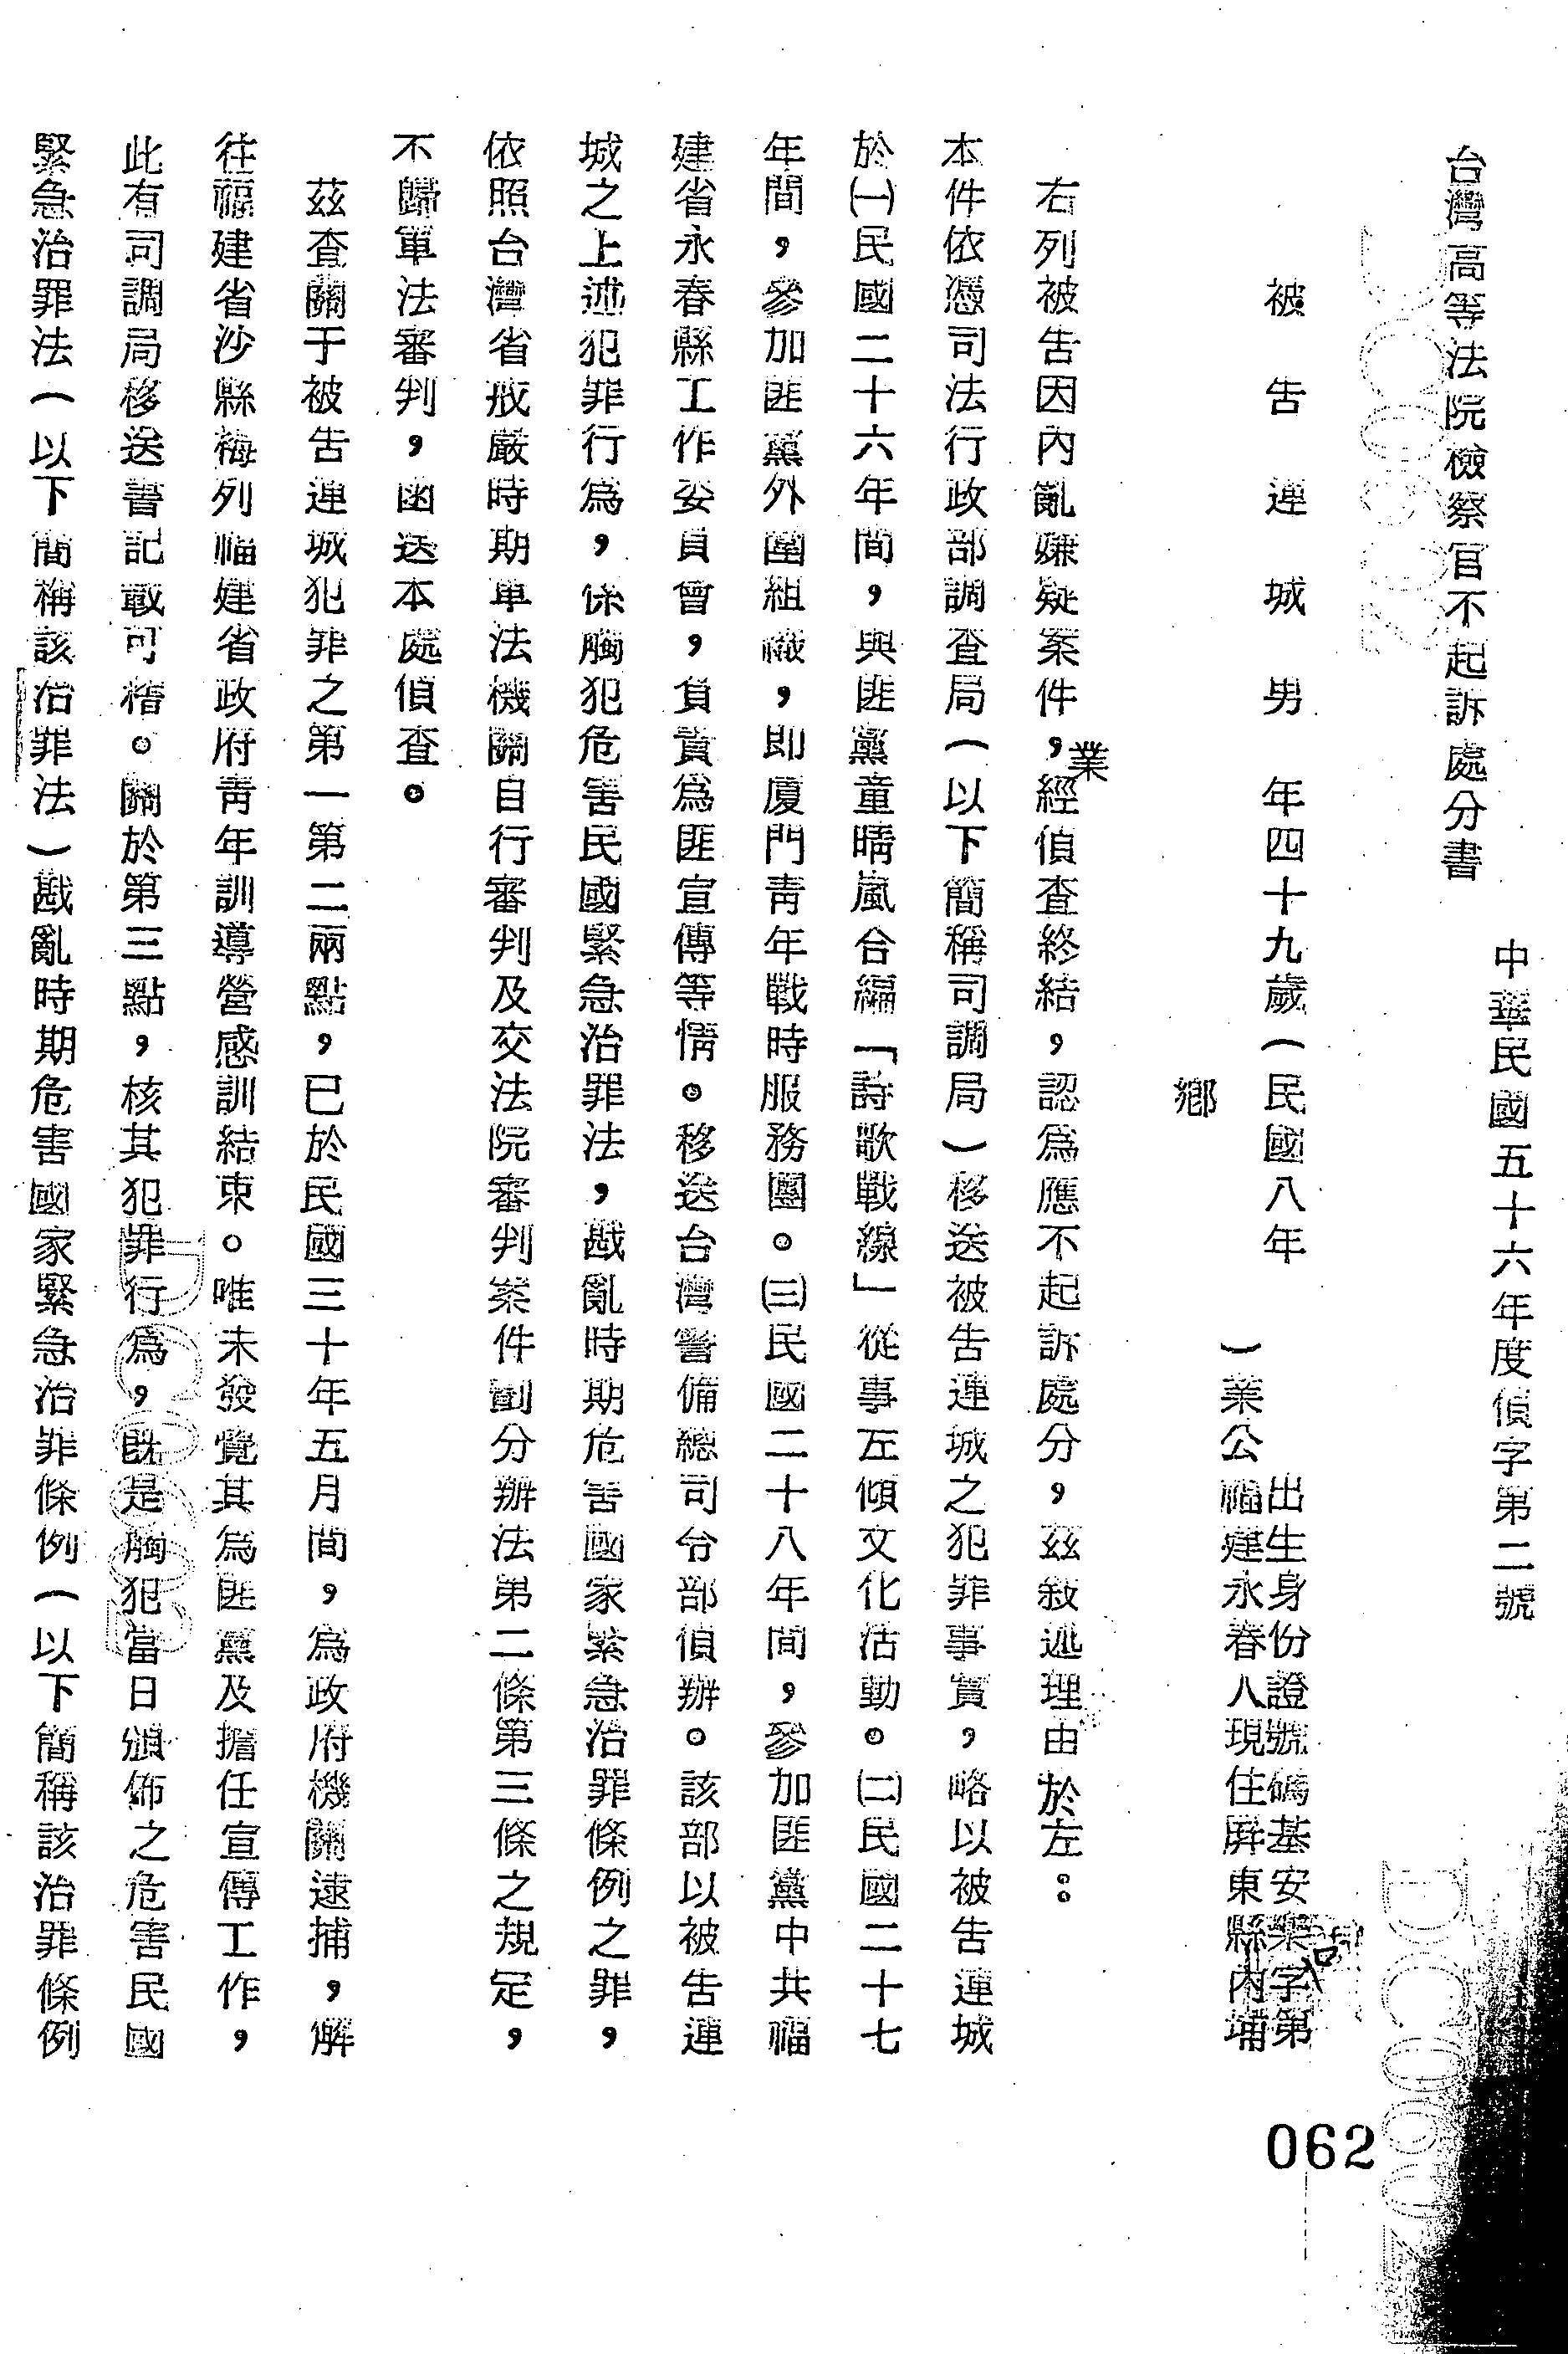 台灣高等法院檢察官不起訴處分書
中華民國五十六年度偵字第二號
被告連城男 年四十九歲(民國八年
出生身份證號碼基安樂字第
)業公福建永春人現住屏東縣內埔
鄉
右列被告因內亂嫌疑案件,業經偵查終結,認為應不起訴處分,茲敘述理由於左:
本件依憑司法行政部調查局(以下簡稱司調局)移送被告連城之犯罪事實,略以被告連城
於㈠民國二十六年間,與匪黨童晴嵐合編「詩歌戰線」從事左傾文化活動。㈡民國二十七
年間,參加匪黨外圍組織,即廈門青年戰時服務團。㈢民國二十八年間,參加匪黨中共福
建省永春縣工作委員會,負責為匪宣傳等情。移送台灣警備總司令部偵辦。該部以被告連
城之上述犯罪行為,係觸犯危害民國緊急治罪法,戡亂時期危害國家緊急治罪條例之罪,
依照台灣省戒嚴時期軍法機關自行審判及交法院審判案件劃分辦法第二條第三條之規定,
不歸軍法審判,函送本處偵查。
茲查關于被告連城犯罪之第一第二兩點,已於民國三十年五月間,為政府機關逮捕,解
往福建省沙縣梅列福建省政府青年訓導營感訓結束。唯未發覺其為匪黨及擔任宣傳工作,
此有司調局移送書記載可稽。關於第三點,核其犯罪行為,既是觸犯當日頒佈之危害民國
緊急治罪法(以下簡稱該治罪法)戡亂時期危害國家緊急治罪條例(以下簡稱該治罪條例
062